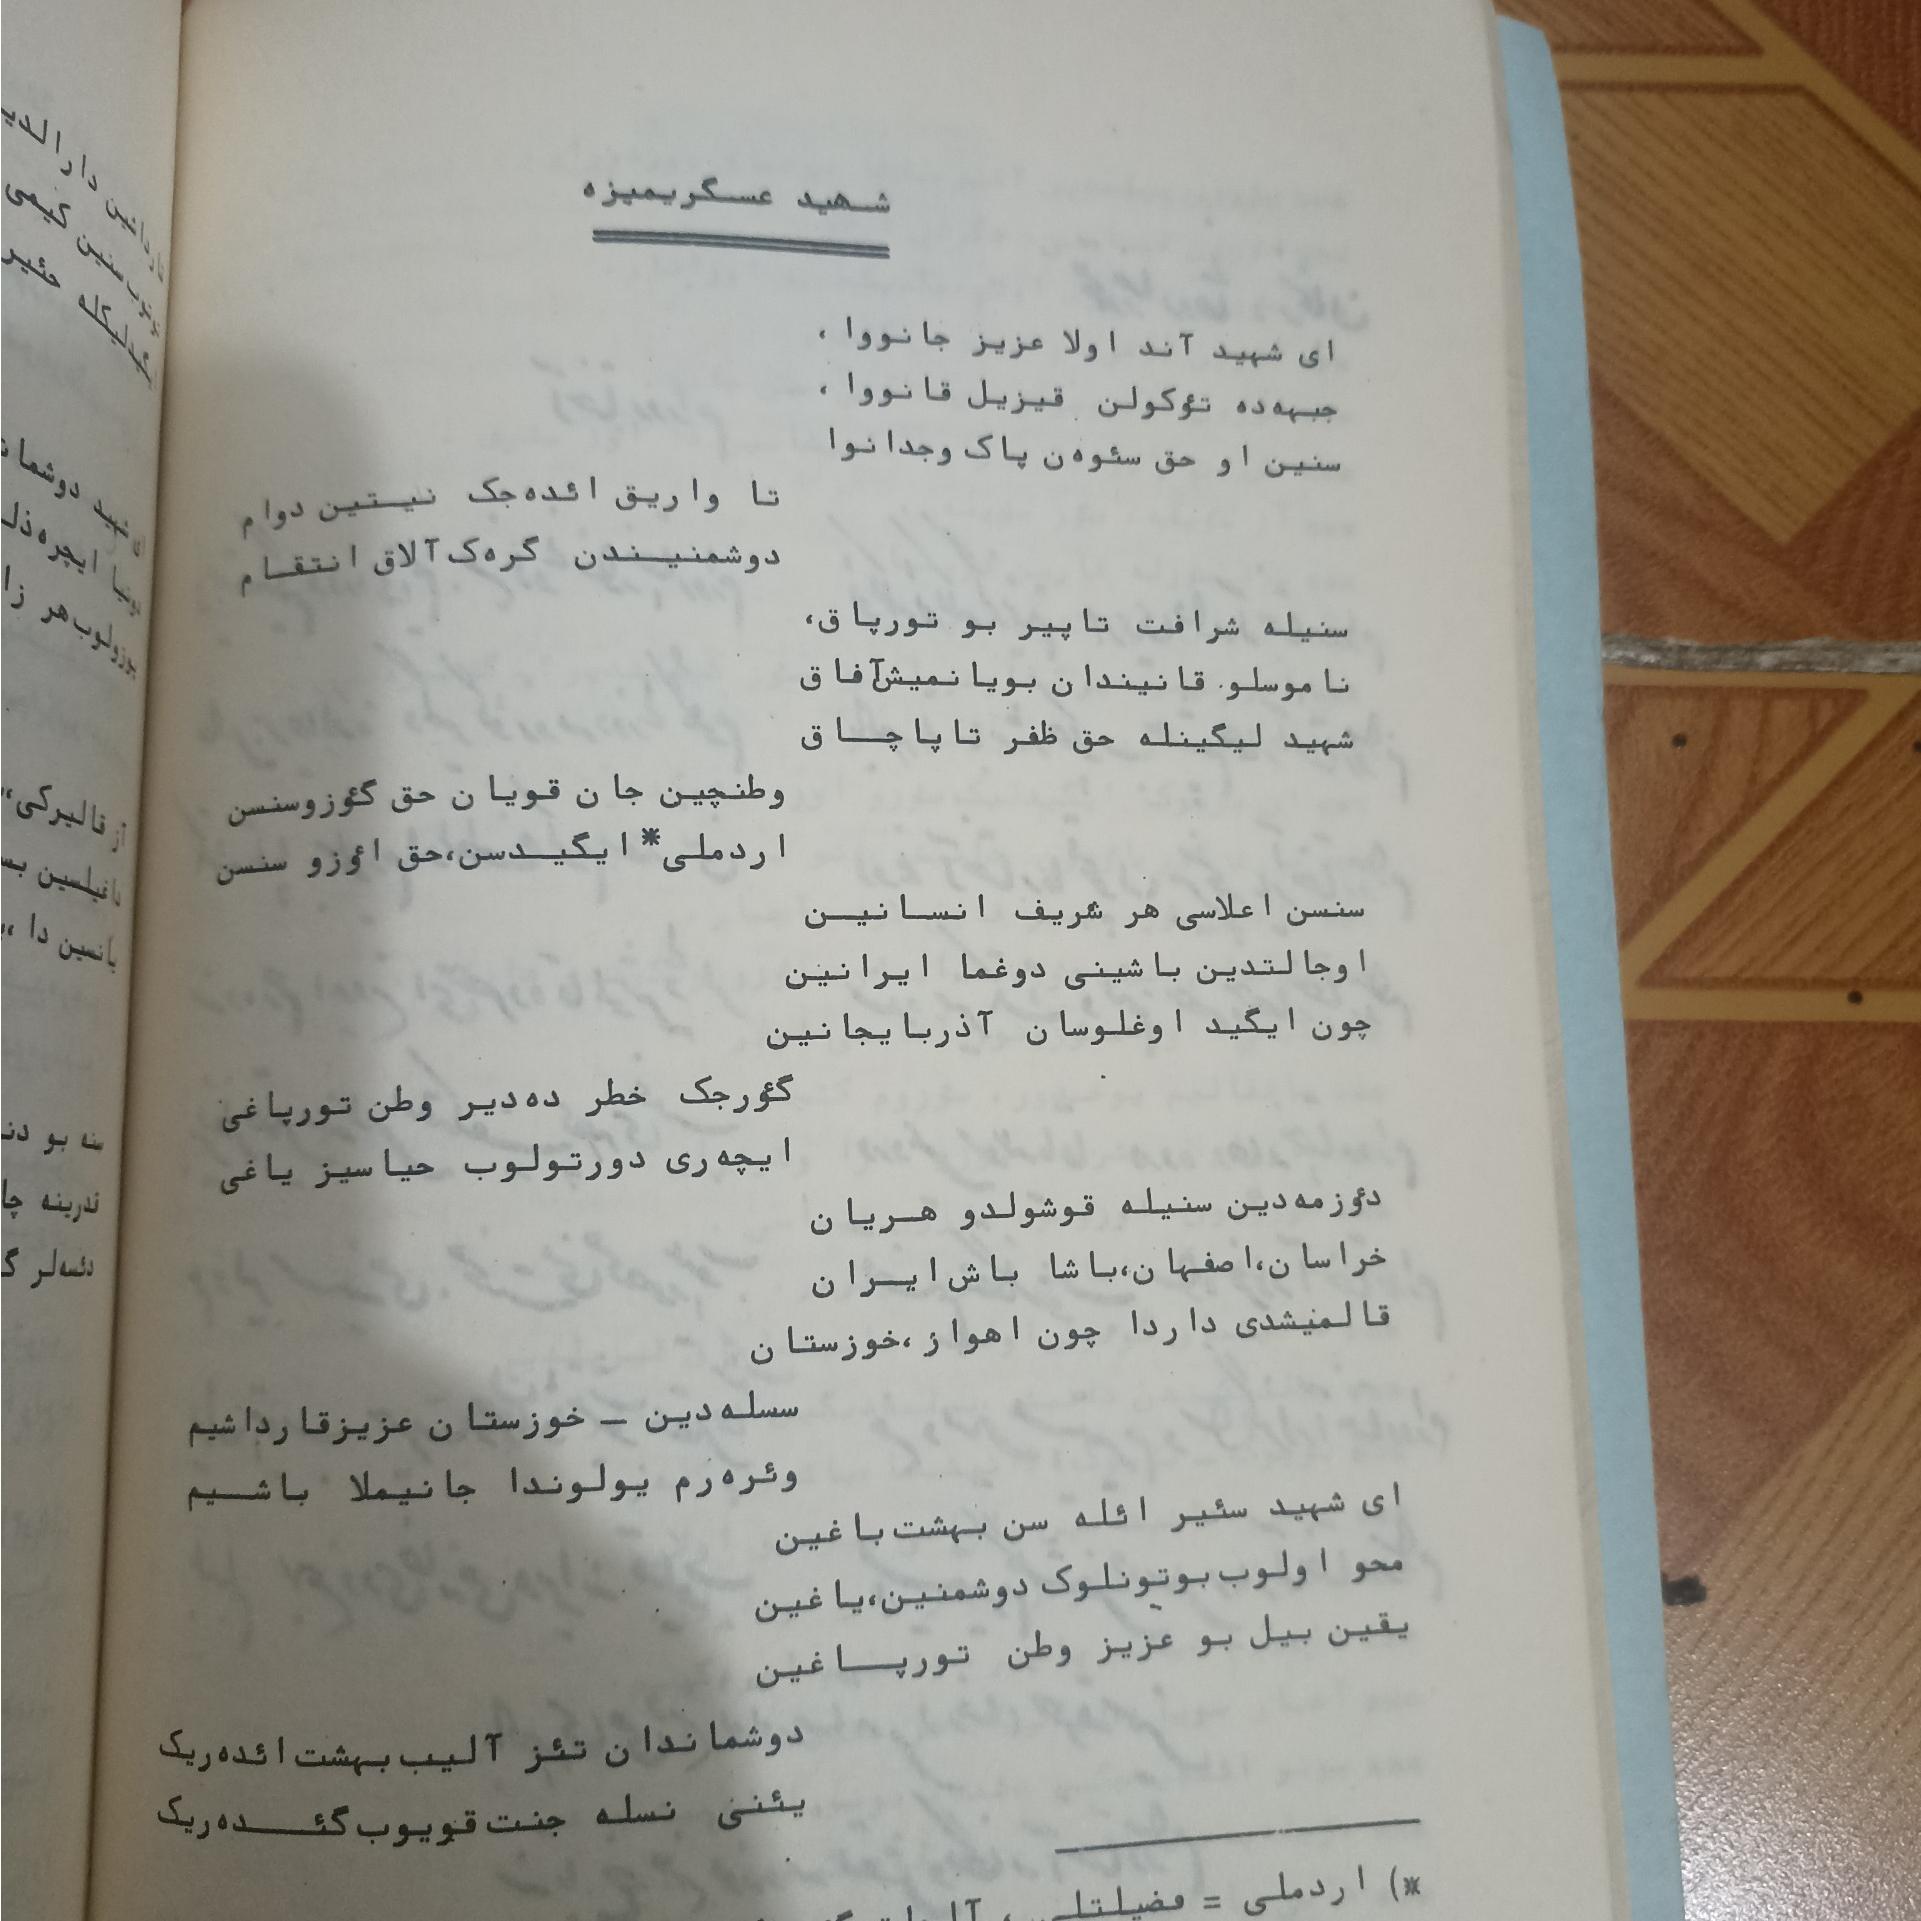 شهید عسگریمیزه
ای شهید آند اولا عزیز جانووا ،
جبهه‌ده تؤکولن قیزیل قانووا ،
سنین او حق سئوه‌ن پاک وجدانوا
تا واریق ائده‌جک نیتین دوام
دوشمنیندن گره‌ک آلاق انتقام
سنیله شرافت تاپیر بو تورپاق،
ناموسلو قانیندان بویانمیش آفاق
شهید لیگینله حق ظفر تاپاجاق
وطنچین جان قویان حق گئوزوسنسن
اردملی* ایگیدسن،حق ائوزو سنسن
سنسن اعلاسی هر شریف انسانین
اوجالتدین باشینی دوغما ایرانین
چون ایگید اوغلوسان آذربایجانین
گؤرجک خطر ده‌دیر وطن تورپاغی
ایچه‌ری دورتولوب حیاسیز یاغی
دؤزمه‌دین سنیله قوشولدو هریان
خراسان،اصفهان،باشا باش ایران
قالمیشدی داردا چون اهواز ،خوزستان
سسله‌دین – خوزستان عزیزقارداشیم
وئره‌رم یولوندا جانیملا باشیم
ای شهید سئیر ائله سن بهشت باغین
محو اولوب بوتونلوک دوشمنین،یاغین
یقین بیل بو عزیز وطن تورپاغین
دوشماندان تئز آلیب بهشت ائده‌ریک
یئنی نسله جنت قویوب گئده‌ریک
*) اردملی = فضیلتلی ،
قارداغین دارالدیـ
کیمی
دوشمان
ایچره
هر
قالیرکی،
دا
سنه بو